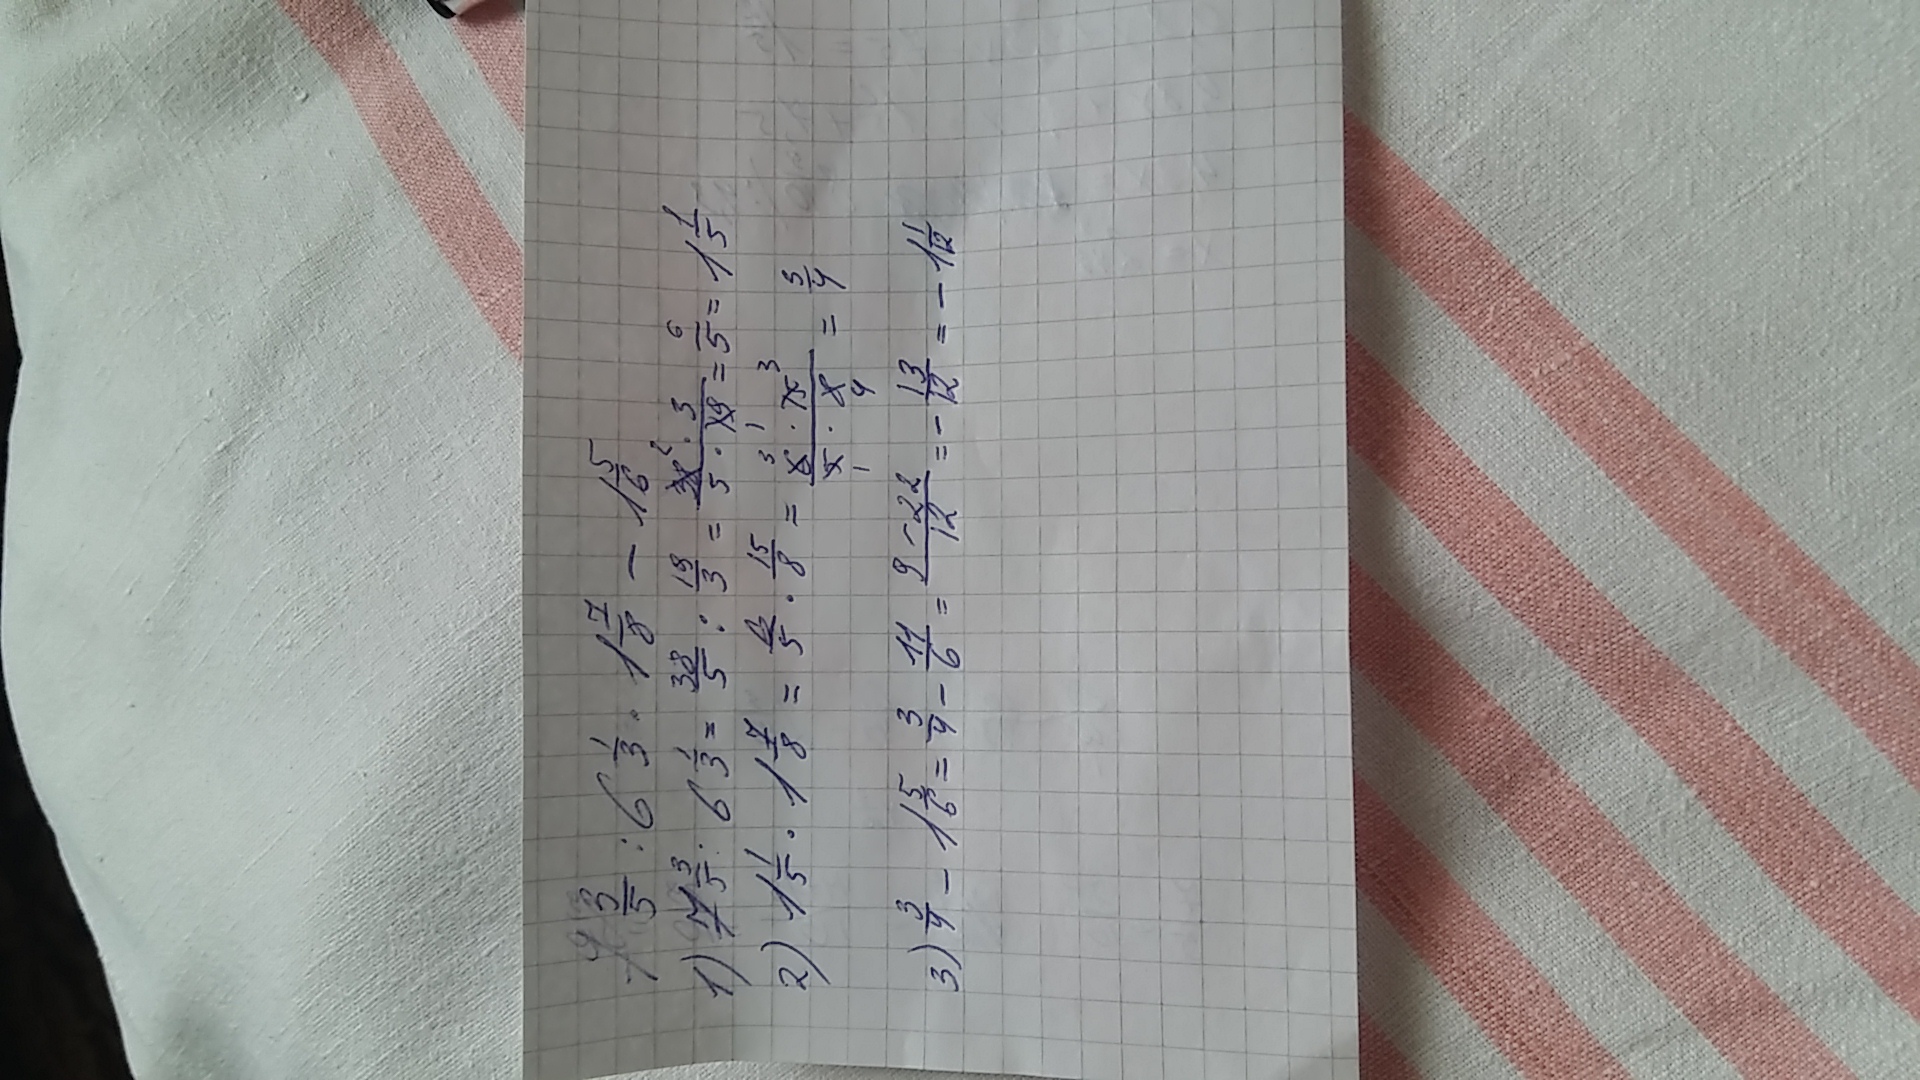 7 3/5 : 6 1/3 · 1 7/8 − 1 5/6
1) 7 3/5 : 6 1/3 = 38/5 : 19/3 = 38 2 · 3 / 5 · 19 = 6/5 = 1 1/5
2) 1 1/5 · 1 7/8 = 6/5 · 15/8 = 3 6 1 · 15 3 / 5 1 · 8 4 = 3/4
3) 3/4 − 1 5/6 = 3/4 − 11/6 = 9 − 22 / 12 = − 13/12 = − 1 1/12